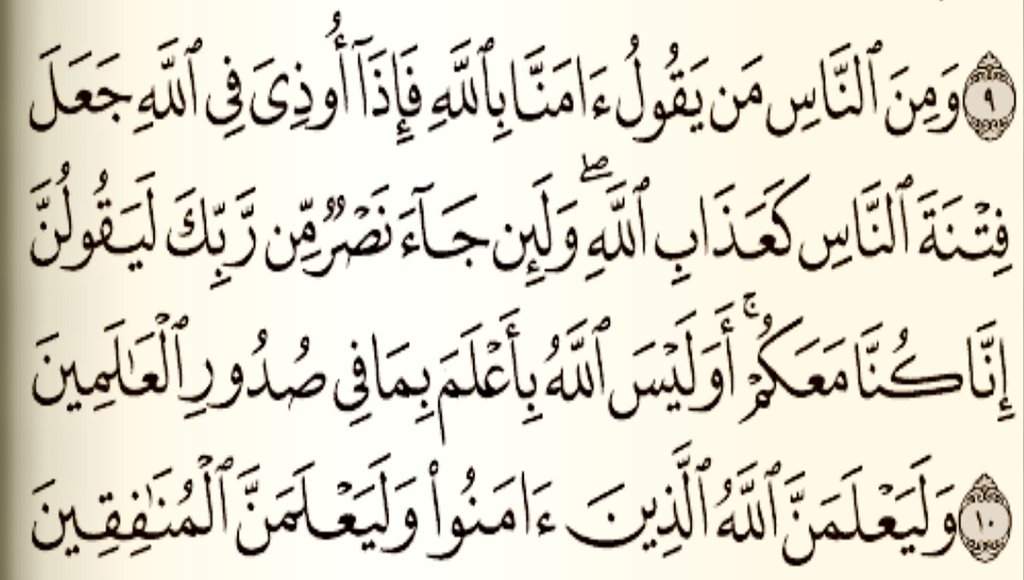 ٩ وَمِنَ ٱلنَّاسِ مَن يَقُولُ ءَامَنَّا بِٱللَّهِ فَإِذَآ أُوذِىَ فِى ٱللَّهِ جَعَلَ
فِتْنَةَ ٱلنَّاسِ كَعَذَابِ ٱللَّهِۖ وَلَئِن جَآءَ نَصْرٌ مِّن رَّبِّكَ لَيَقُولُنَّ
إِنَّا كُنَّا مَعَكُمْۚ أَوَلَيْسَ ٱللَّهُ بِأَعْلَمَ بِمَا فِى صُدُورِ ٱلْعَٰلَمِينَ
١٠ وَلَيَعْلَمَنَّ ٱللَّهُ ٱلَّذِينَ ءَامَنُوا۟ وَلَيَعْلَمَنَّ ٱلْمُنَٰفِقِينَ